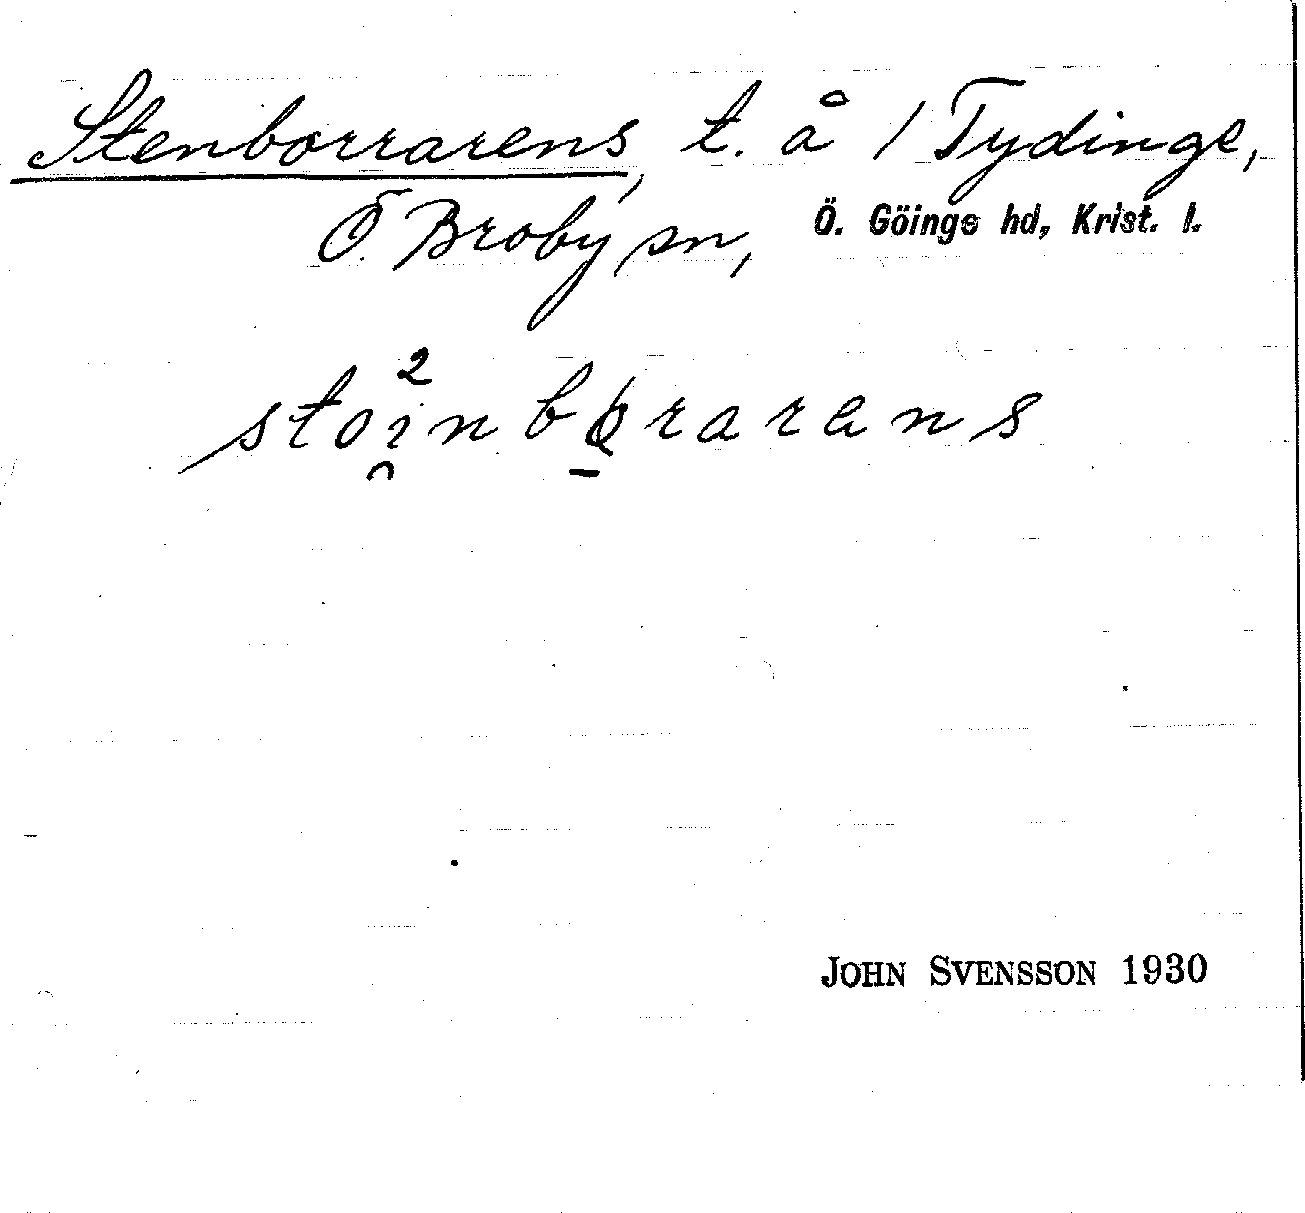 Stenborrarens, t. å / Tydinge,
Ö. Broby sn, Ö. Göinge hd, Krist. l.
2
stoi̯nbo̱rrarans
JOHN SVENSSON 1930